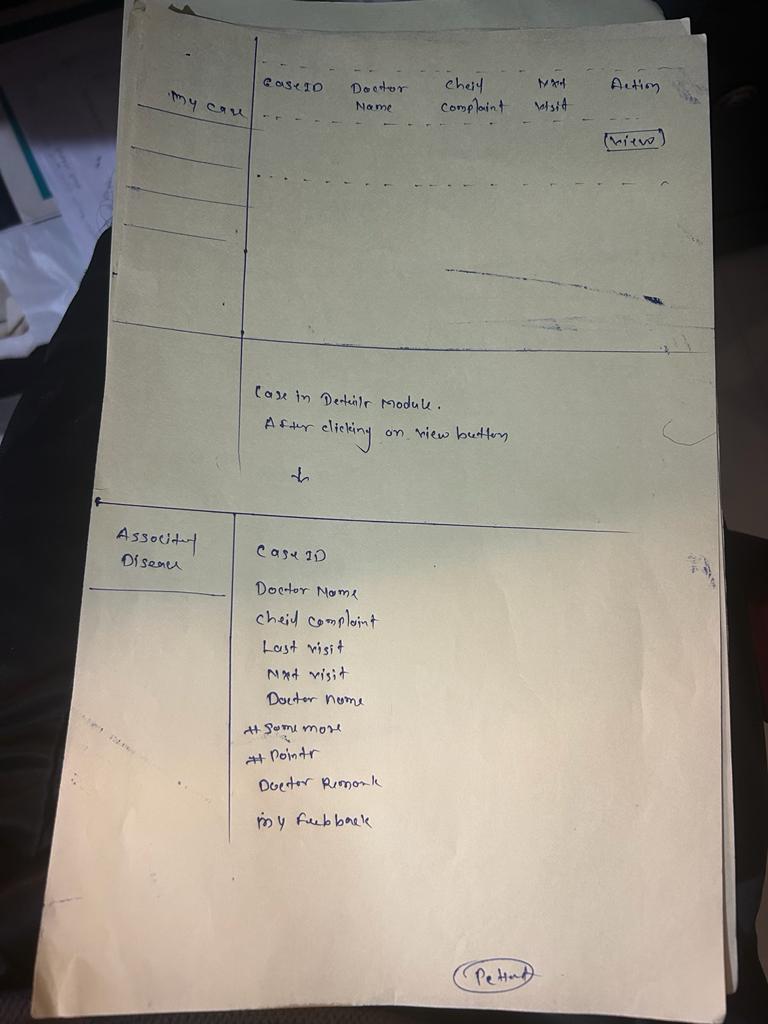 My case
Case ID Doctor Name Cheif Complaint Next Visit Action
(View)
Case in Details Module.
After clicking on view button
Associated Disease
Case ID
Doctor Name
Cheif complaint
Last visit
Next visit
Doctor name
# Some more
# Points
Doctor Remark
my feedback